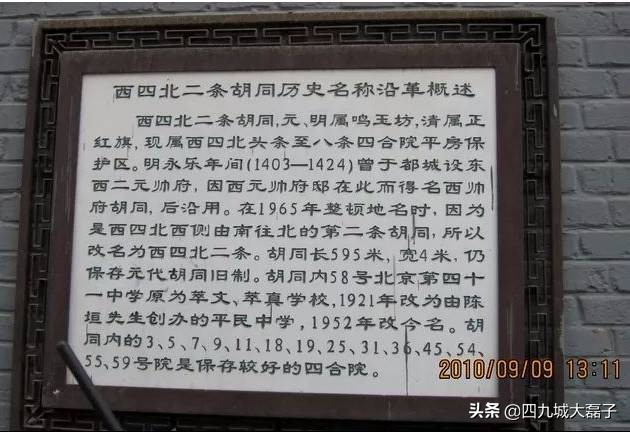 西四北二条胡同历史名称沿革概述
西四北二条胡同,元、明属鸣玉坊,清属正
红旗,现属西四北头条至八条四合院平房保
护区。明永乐年间(1403—1424)曾于都城设东
西二元帅府,因西元帅府邸在此而得名西帅
府胡同,后沿用。在1965年整顿地名时,因为
是西四北西侧由南往北的第二条胡同,所以
改名为西四北二条。胡同长595米,宽4米,仍
保存元代胡同旧制。胡同内58号北京第四十
一中学原为萃文、萃真学校,1921年改为由陈
垣先生创办的平民中学,1952年改今名。胡
同内的3、5、7、9、11、18、19、25、31、36、45、54、
55、59号院是保存较好的四合院。
2010/09/09 13:11
头条 @四九城大磊子